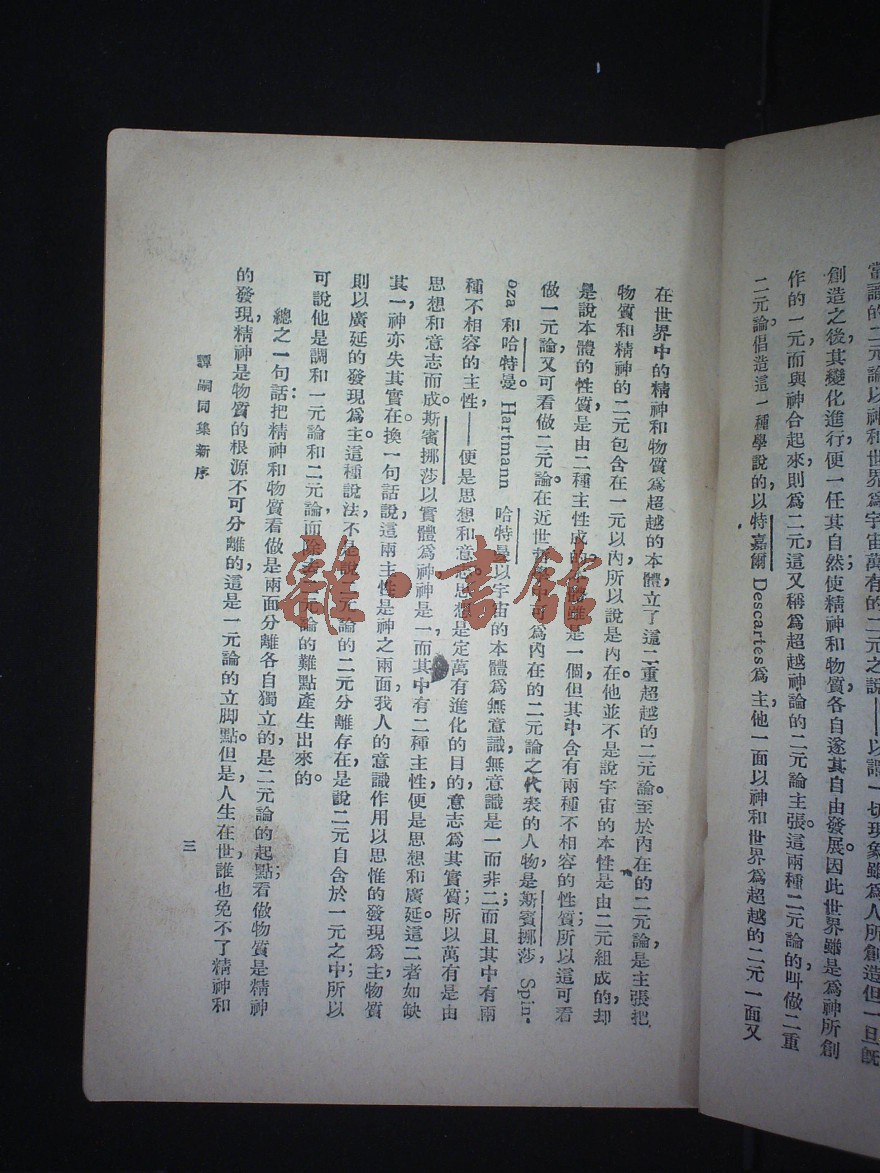 當謂的二元論以神和世界爲宇宙萬有的二元之說——以謂一切現象雖爲人所創造但一旦旣
創造之後,其變化進行,便一任其自然;使精神和物質,各自遂其自由發展。因此世界雖是爲神所創
作的一元,而與神合起來則爲二元,這又稱爲超越神論的二元論主張。這兩種二元論的叫做二重
二元論,倡造這一種學說的以特嘉爾 Descartes 爲主。他一面以神和世界爲超越的二元,一面又
在世界中的精神和物質爲超越的本體,立了這二重超越的二元論。至於內在的二元論,是主張把
物質和精神的二元包含在一元以內,所以說是內在。他並不是說宇宙的本性是由二元組成的,却
是說本體的性質是由二種主性成的。本體雖是一個,但其中含有兩種不相容的性質,所以這可看
做一元論,又可看做二元論。在近世哲學中可爲內在的二元論之代表的人物,是斯賓挪莎 Spin-
oza 和哈特曼。 Hartmann 哈特曼以宇宙的本體爲無意識,無意識是一而非二;而且其中有兩
種不相容的主性,——便是思想和意志。思想是定萬有進化的目的,意志爲其實質;所以萬有是由
思想和意志而成。斯賓挪莎以實體爲神,神是一而其中有二種主性,便是思想和廣延。這二者如缺
其一,神亦失其實在。換一句話說,這兩主性是神之兩面,我人的意識作用以思惟的發現爲主,物質
則以廣延的發現爲主。這種說法,不是說二元論的二元分離存在,是說二元自含於一元之中;所以
可說他是調和一元論和二元論,而除去二元論的難點產生出來的。
總之一句話:把精神和物質看做是兩面分離各自獨立的,是二元論的起點;看做物質是精神
的發現,精神是物質的根源不可分離的,這是一元論的立脚點。但是,人生在世,誰也免不了精神和
譚嗣同集新序
三
雜·書館